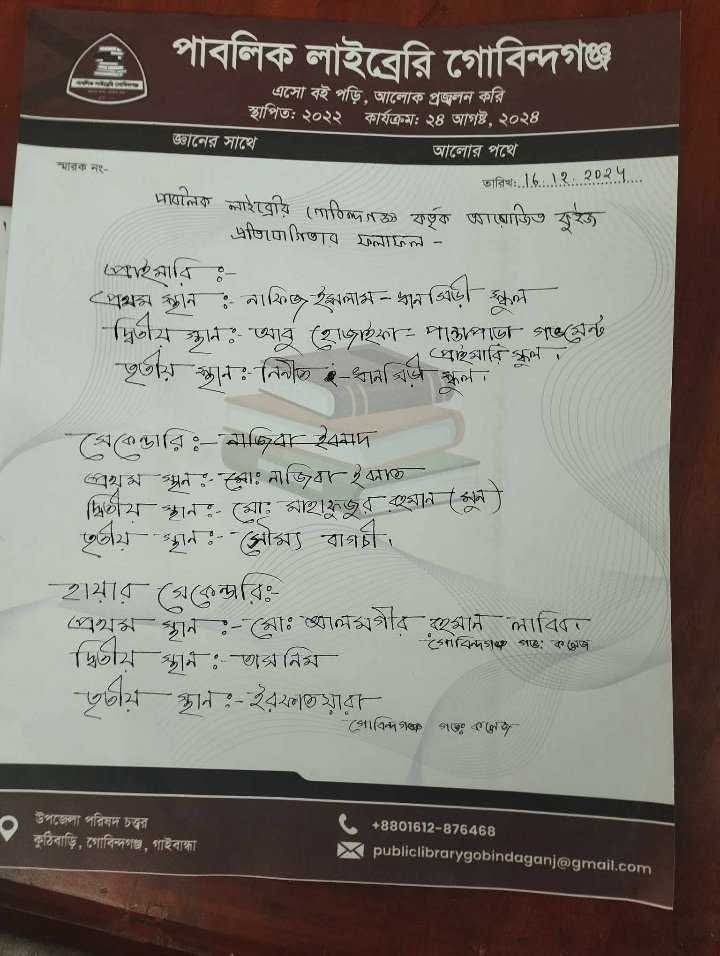 পাবলিক লাইব্রেরি গোবিন্দগঞ্জ
এসো বই পড়ি, আলোক প্রজ্বলন করি
স্থাপিত: ২০২২ কার্যক্রম: ২৪ আগষ্ট, ২০২৪
জ্ঞানের সাথে আলোর পথে
স্মারক নং-
তারিখ: 16.12.2024
পাবলিক লাইব্রেরি গোবিন্দগঞ্জ কর্তৃক আয়োজিত কুইজ
প্রতিযোগিতার ফলাফল -
প্রাইমারি ঃ-
প্রথম স্থান ঃ নাফিজ ইসলাম - ধানসিড়ী স্কুল
দ্বিতীয় স্থান ঃ- আবু হোজাইফা - পান্তাপাড়া গভমেন্ট
প্রাইমারি স্কুল।
তৃতীয় স্থান ঃ -ধানসিড়ী স্কুল।
সেকেন্ডারি ঃ- নাজিবা
প্রথম স্থান ঃ- মোঃ নাজিবা
দ্বিতীয় স্থান ঃ- মোঃ মাহাফুজুর রহমান (মুন)
তৃতীয় স্থান ঃ- সৌম্য বাগচী।
হায়ার সেকেন্ডারি ঃ-
প্রথম স্থান ঃ- মোঃ আলমগীর রহমান লাবিব।
গোবিন্দগঞ্জ গভঃ কলেজ
দ্বিতীয় স্থান ঃ- তাসনিম
তৃতীয় স্থান ঃ- ইরফাত য়ারা
-গোবিন্দগঞ্জ গভঃ কলেজ
উপজেলা পরিষদ চত্ত্বর
কুঠিবাড়ি, গোবিন্দগঞ্জ, গাইবান্ধা
+8801612-876468
publiclibrarygobindaganj@gmail.com